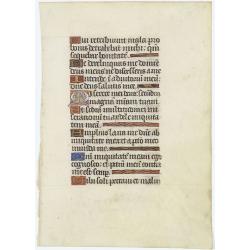 Qui retribuunt mala pro
bonis detrahebant michi: qm̄
sequebar bonitatē.
Ne derelinquas me domine
deus meus ne discesseris a me
Intende in adiutoriū meū:
dñe deus salutis mee.
Miserere mei deus: secūdum
magnam miām tuam.
Et secundum multitudinē mi
serationū tuarū dele iniquita
tem meā.
Amplius laua me dūe ab
iniquitate mea: et a pctō meo
munda me.
Qm̄ iniquitatē meam ego
cognosco: et pctm̄ meū contra
me est semp.
Tibi soli peccaui et malū